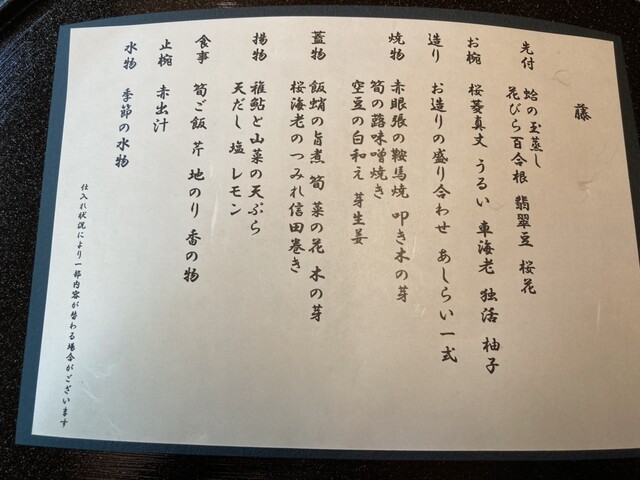 藤
先付 蛤の玉蒸し
花びら百合根 翡翠豆 桜花
お椀 桜菱真丈 うるい 車海老 独活 柚子
造り お造りの盛り合わせ あしらい一式
焼物 赤眼張の鞍馬焼 叩き木の芽
筍の蕗味噌焼き
空豆の白和え 芽生姜
蓋物 飯蛸の旨煮 筍 菜の花 木の芽
桜海老のつみれ信田巻き
揚物 稚鮎と山菜の天ぷら
天だし 塩 レモン
食事 筍ご飯 芹 地のり 香の物
止椀 赤出汁
水物 季節の水物
仕入れ状況により一部内容が替わる場合がございます